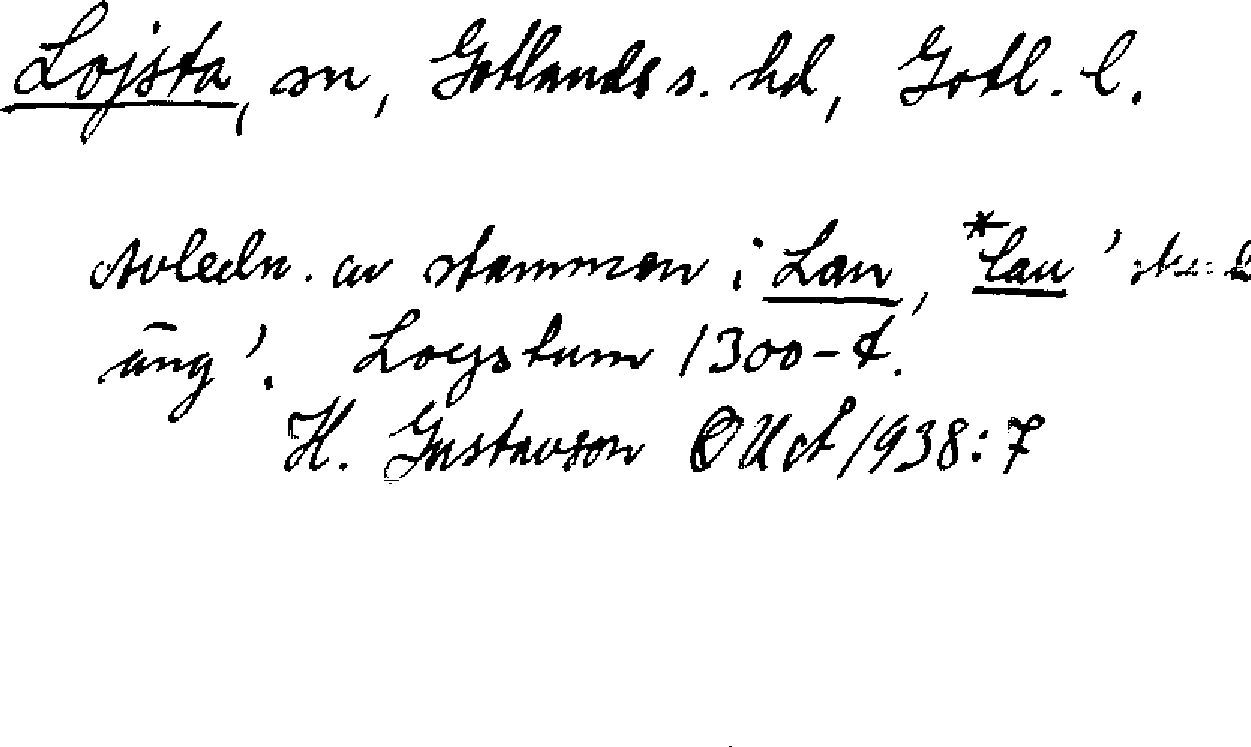 Lojsta, sn, Gotlands s. hd, Gotl. l.
Avledn. av stammen i Lau, *lau '
äng'. Loystum 1300-t.
H. Gustavson OUÅ 1938:7